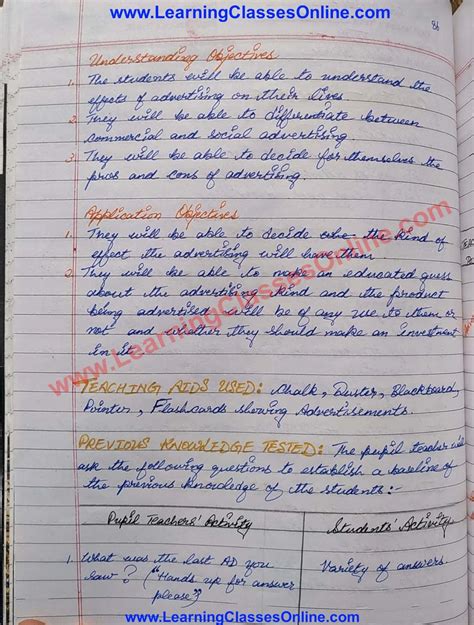 www.LearningClassesOnline.com
Understanding Objectives
1. The students will be able to understand the
effects of advertising on their lives
2. They will be able to differentiate between
commercial and social advertising.
3. They will be able to decide for themselves the
pros and cons of advertising.
Application Objectives
1. They will be able to decide the kind of
effect the advertising will have them
2. They will be able to make an educated guess
about the advertising kind and the product
being advertised will be of any use to them or
not and whether they should make an investment
in it.
www.LearningClassesOnline.com
TEACHING AIDS USED: Chalk, Duster, Blackboard,
Pointer, Flashcards showing Advertisements.
PREVIOUS KNOWLEDGE TESTED: The pupil teacher will
ask the following questions to establish a baseline
of the previous knowledge of the students:-
Pupil Teachers' Activity Students' Activity
1. What was the last AD you Variety of answers.
saw? ("Hands up for answer
please")
www.LearningClassesOnline.com